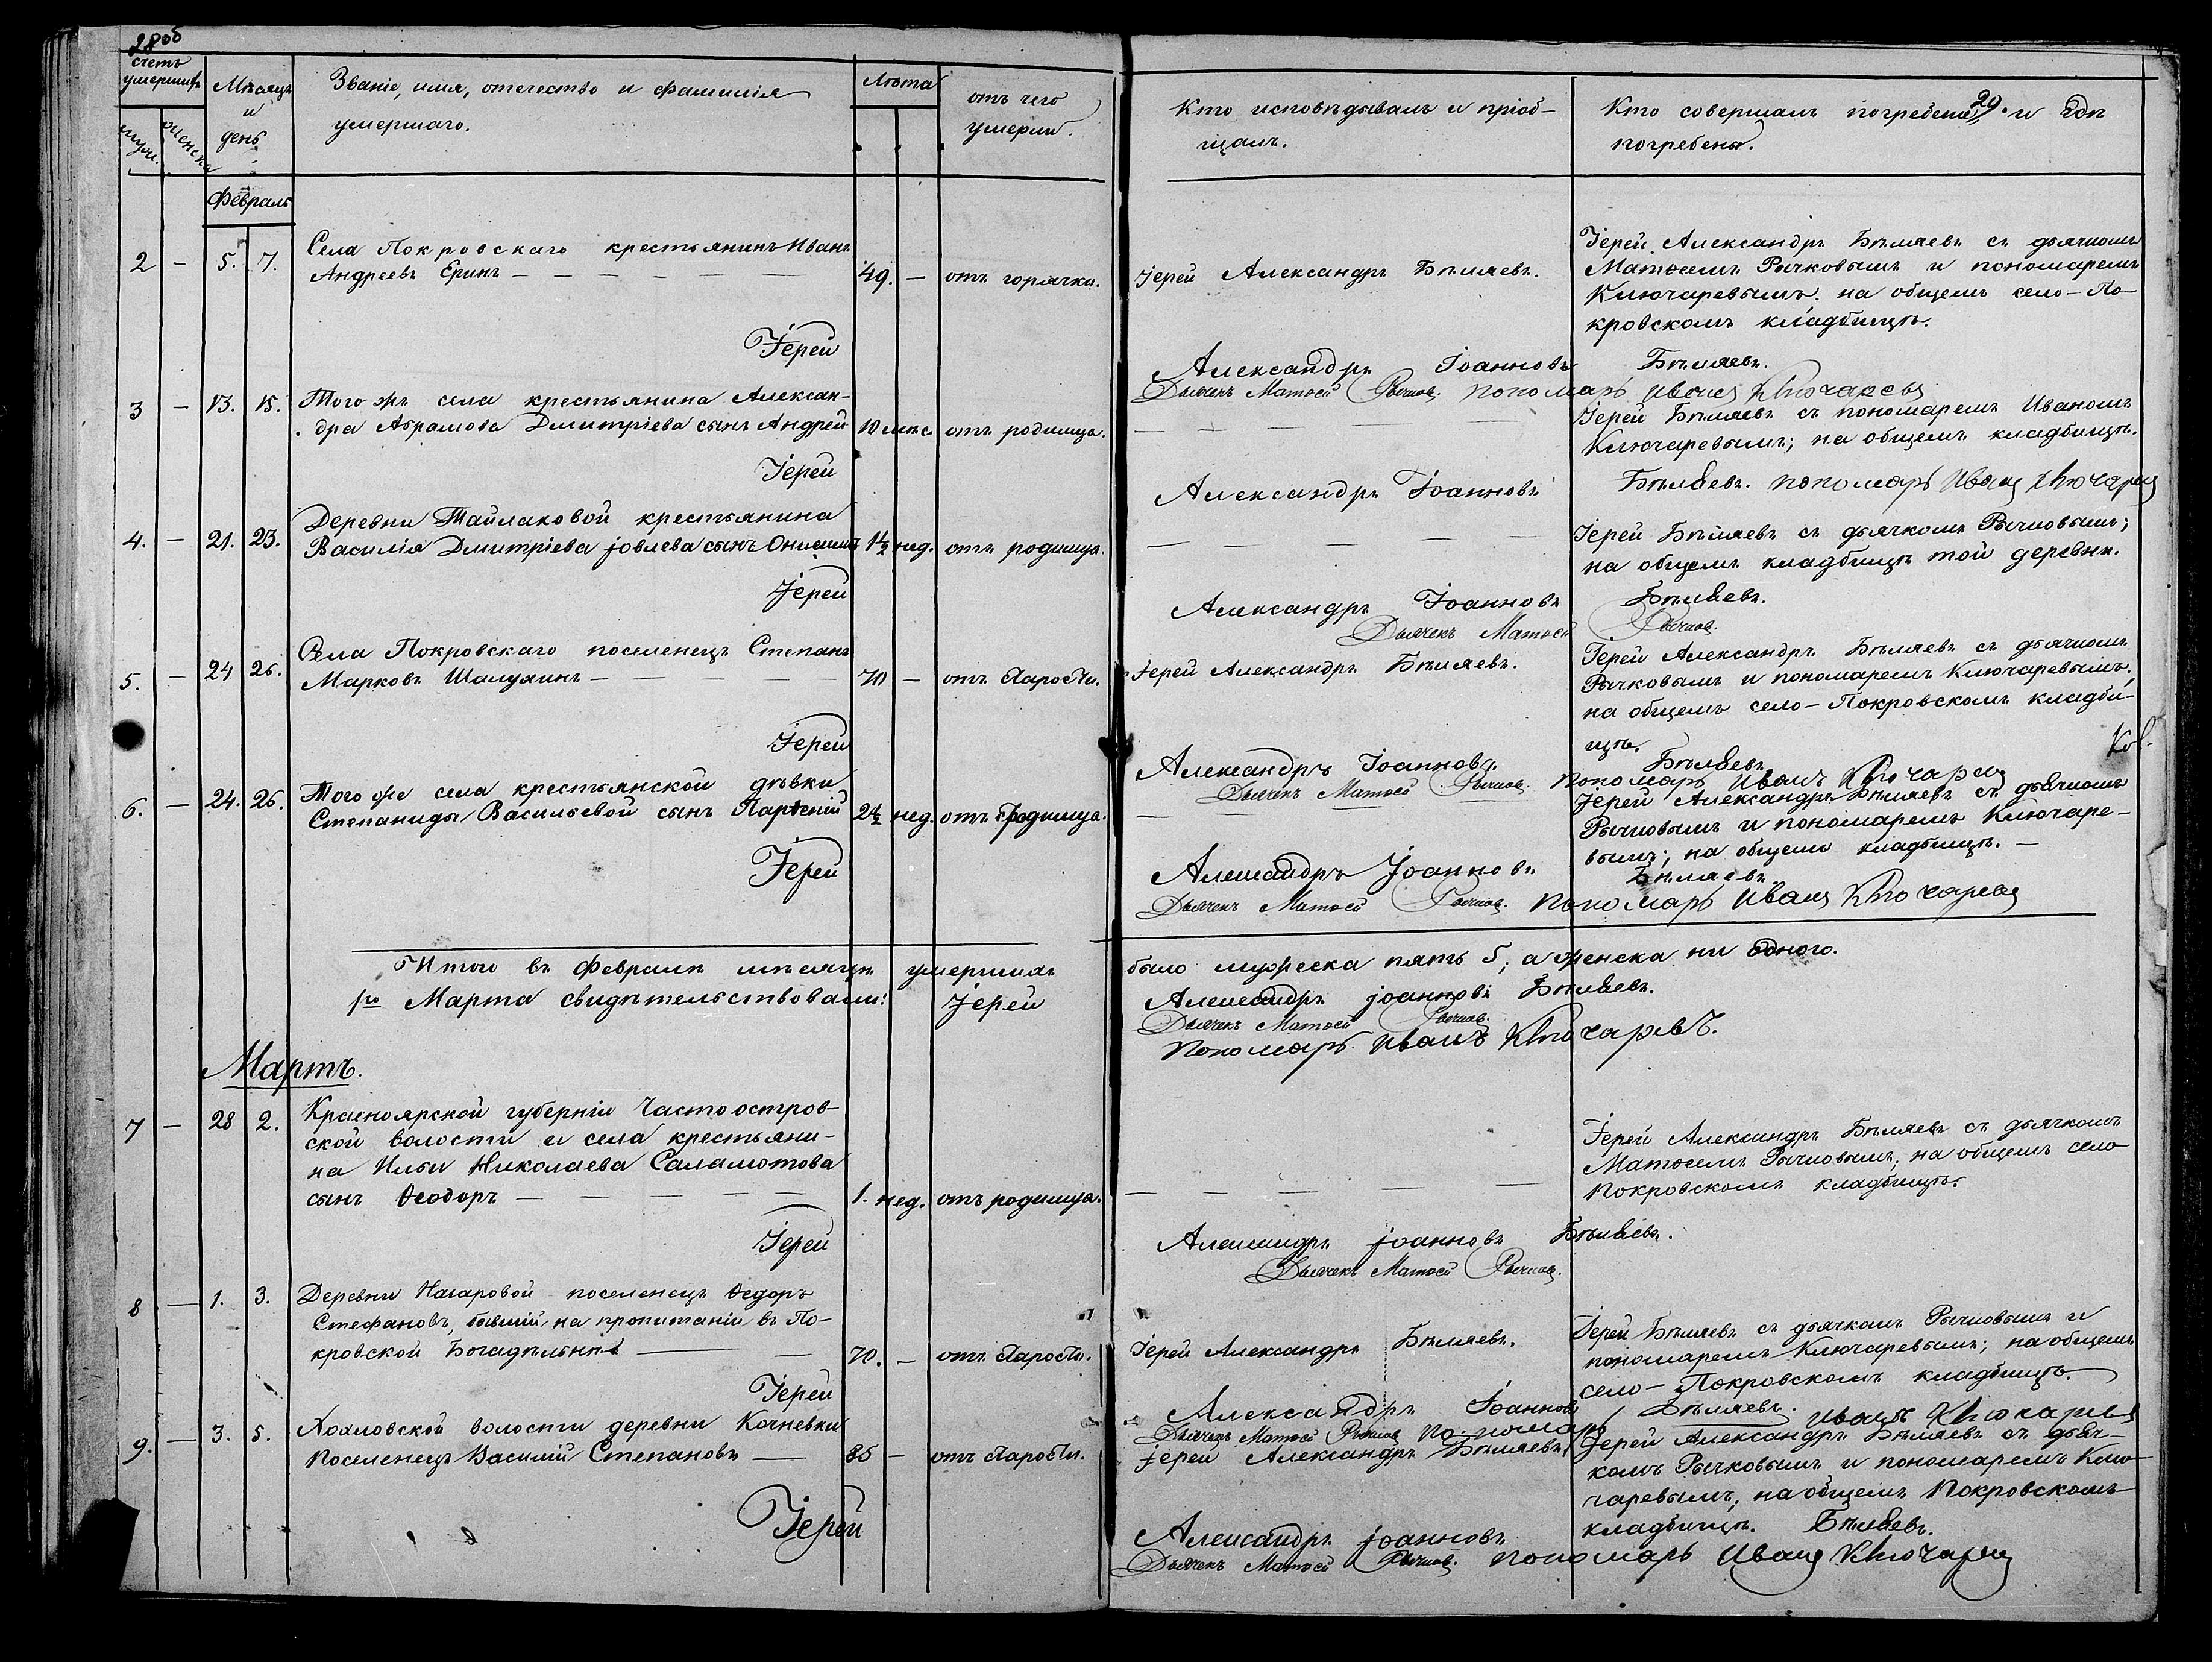 28об
счетъ умершихъ
муж.
женска
Мѣсяцъ и день
Званіе, имя, отечество и фамилія
умершаго.
Лѣта
отъ чего
умерли.
Кто исповѣдывалъ и пріоб-
щалъ.
29.
Кто совершалъ погребеніе и гдѣ
погребены.
Февраль
2 – 5. 7. Села Покровскаго крестьянинъ Иванъ
Андреевъ Еринъ – 49. – отъ горячки.
Іерей Александръ Бѣляевъ.
Іерей Александръ Бѣляевъ съ дьячкомъ
Матѳеемъ Рычковымъ и пономаремъ
Ключаревымъ. на общемъ село-По-
кровскомъ кладбищѣ.
Іерей Александръ Іоанновъ Бѣляевъ.
Дьячекъ Матѳей Рычков. пономарь Иванъ Ключаревъ
3 – 13. 15. Того жъ села крестьянина Алексан-
дра Абрамова Дмитріева сынъ Андрей 10 мѣс. отъ родимца.
Іерей Бѣляевъ съ пономаремъ Иваномъ
Ключаревымъ; на общемъ кладбищѣ.
Іерей Александръ Іоанновъ Бѣляевъ. пономарь Иванъ Ключаревъ
4. – 21. 23. Деревни Тайлаковой крестьянина
Василія Дмитріева Іовлева сынъ Онисимъ 1½ нед. отъ родимца.
Іерей Бѣляевъ съ дьячкомъ Рычковымъ;
на общемъ кладбищѣ той деревни.
Іерей Александръ Іоанновъ Бѣляевъ.
Дьячекъ Матѳей Рычков.
5. – 24 26. Села Покровскаго поселенецъ Степанъ
Марковъ Шалухинъ – 70 – отъ старости.
Іерей Александръ Бѣляевъ.
Іерей Александръ Бѣляевъ съ дьячкомъ
Рычковымъ и пономаремъ Ключаревымъ,
на общемъ село-Покровскомъ кладби-
щѣ.
Іерей Александръ Іоанновъ Бѣляевъ
Дьячекъ Матѳей Рычков. пономарь Иванъ Ключаревъ
6. – 24. 26. Того же села крестьянской дѣвки
Степаниды Васильевой сынъ Парѳеній 2½ нед. отъ родимца.
Іерей Александръ Бѣляевъ съ дьячкомъ
Рычковымъ и пономаремъ Ключаре-
вымъ; на общемъ кладбищѣ. –
Іерей Александръ Іоанновъ Бѣляевъ
Дьячекъ Матѳей Рычков. пономарь Иванъ Ключаревъ
Итого въ Февралѣ мѣсяцѣ умершихъ было мужеска пять 5, а женска ни одного.
1го Марта свидѣтельствовали: Іерей Александръ Іоанновъ Бѣляевъ.
Дьячекъ Матѳей Рычков.
Пономарь Иванъ Ключаревъ.
Мартъ.
7 – 28 2. Красноярской губерніи Частоостров-
ской волости и села крестьяни-
на Ильи Николаева Саламотова
сынъ Ѳеодоръ – 1. нед. отъ родимца.
Іерей Александръ Бѣляевъ съ дьячкомъ
Матѳеемъ Рычковымъ; на общемъ село
Покровскомъ кладбищѣ.
Іерей Александръ Іоанновъ Бѣляевъ.
Дьячекъ Матѳей Рычков.
8 – 1. 3. Деревни Назаровой поселенецъ Ѳедоръ
Стефановъ, бывшій на пропитаніи въ По-
кровской Богадѣльнѣ – 70. – отъ старости.
Іерей Александръ Бѣляевъ.
Іерей Бѣляевъ съ дьячкомъ Рычковымъ и
пономаремъ Ключаревымъ; на общемъ
село-Покровскомъ кладбищѣ.
Іерей Александръ Іоанновъ Бѣляевъ.
Дьячекъ Матѳей Рычков. пономарь Иванъ Ключаревъ
9. – 3. 5. волости деревни
Поселенецъ Василій Степановъ – 85 – отъ старости.
Іерей Александръ Бѣляевъ.
Іерей Александръ Бѣляевъ съ дьяч-
комъ Рычковымъ и пономаремъ Клю-
чаревымъ, на общемъ Покровскомъ
кладбищѣ.
Іерей Александръ Іоанновъ Бѣляевъ.
Дьячекъ Матѳей Рычков. пономарь Иванъ Ключаревъ